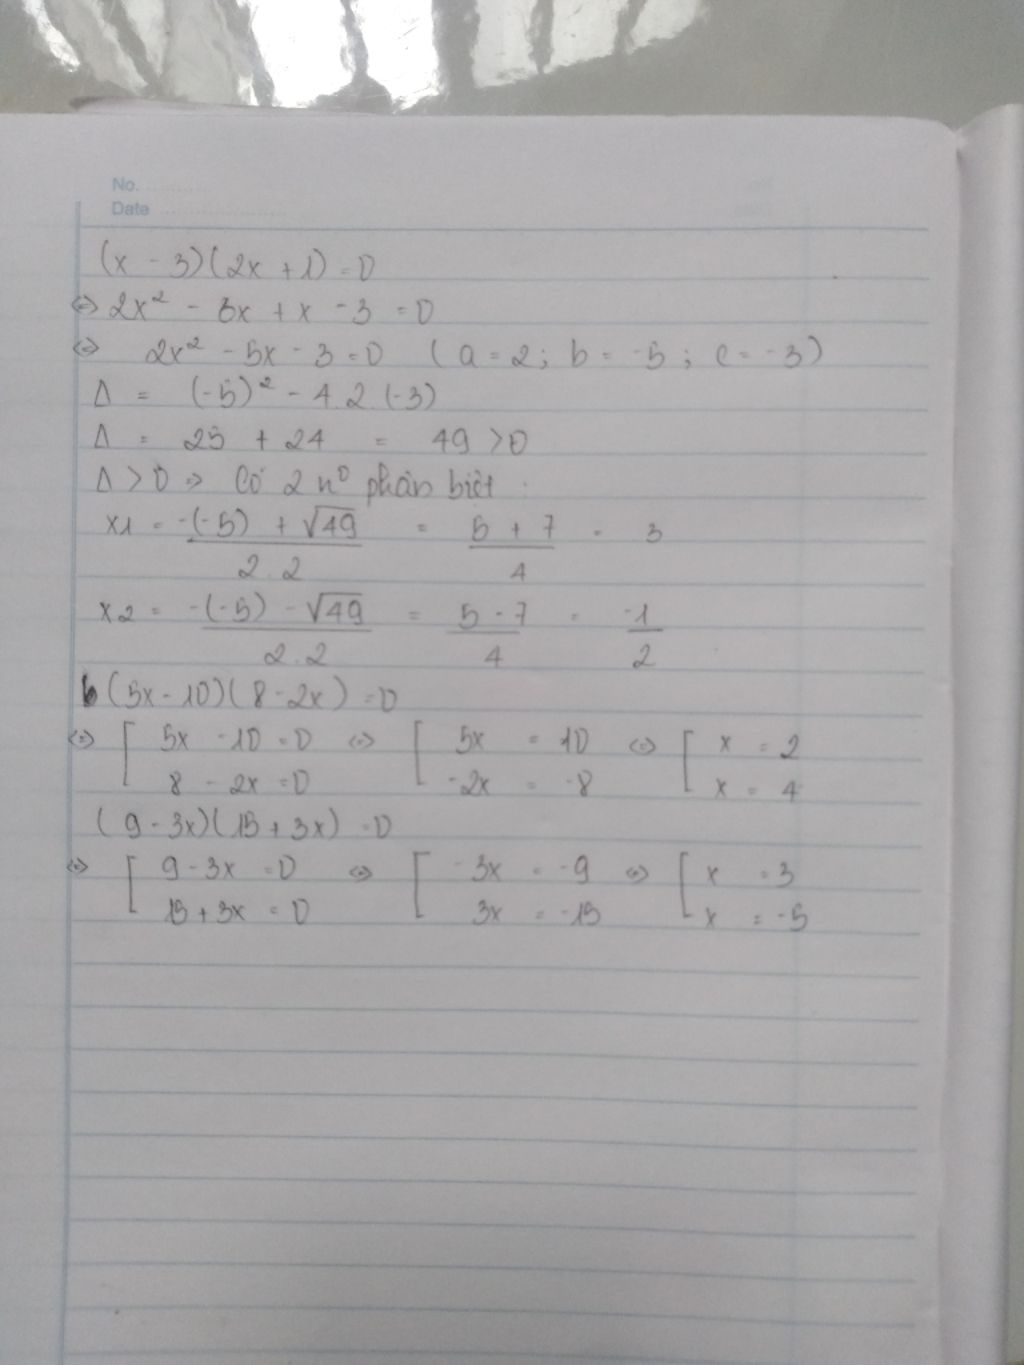 No.
Date
(x - 3)(2x + 1) = 0
⇔ 2x² - 6x + x - 3 = 0
⇔ 2x² - 5x - 3 = 0 (a = 2; b = -5; c = -3)
Δ = (-5)² - 4.2.(-3)
Δ = 25 + 24 = 49 > 0
Δ > 0 => Có 2 n⁰ phân biệt.
x1 = (-(-5) + √49)/(2.2) = (5 + 7)/4 = 3
x2 = (-(-5) - √49)/(2.2) = (5 - 7)/4 = -1/2
b (5x - 10)(8 - 2x) = 0
⇔ [ 5x - 10 = 0 ⇔ [ 5x = 10 ⇔ [ x = 2
8 - 2x = 0 -2x = -8 x = 4
(9 - 3x)(15 + 3x) = 0
⇔ [ 9 - 3x = 0 ⇔ [ -3x = -9 ⇔ [ x = 3
15 + 3x = 0 3x = -15 x = -5